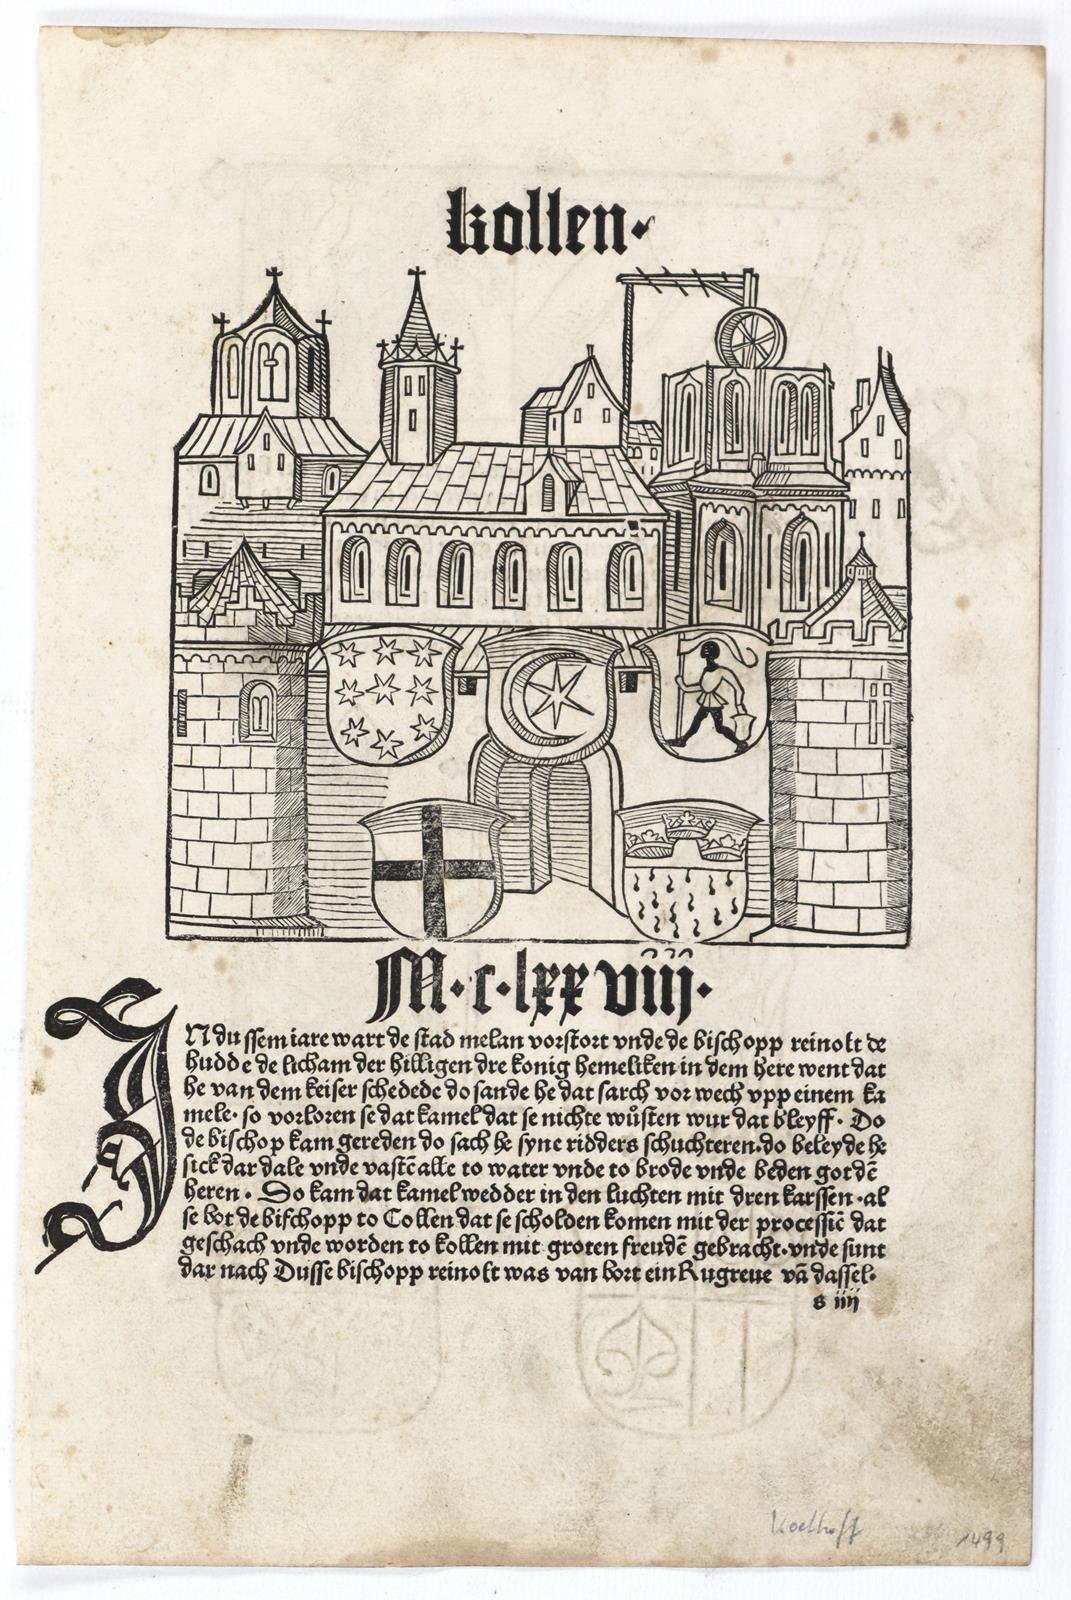 kollen.
M.c.lxxviiij.
INdussem iare wart de stad melan vorstort vnde de bischopp reinolt de
hudde de licham der hilligen dre konig hemeliken in dem here went dat
he van dem keiser schedede do sande he dat sarch vor wech vpp einem ka
mele. so vorloren se dat kamel dat se nichte wůsten wur dat bleyff. Do
de bischop kam gereden do sach he syne ridders schuchteren.do beleyde he
sick dar dale vnde vastē alle to water vnde to brode vnde beden got dē
heren. So kam dat kamel wedder in den luchten mit dren karssen.al
se bot de bischopp to Collen dat se scholden komen mit der processiē dat
geschach vnde worden to kollen mit groten freudē gebracht.vnde sunt
dar nach Dusse bischopp reinolt was van bort ein Rugreue vā dassel.
s iiij
Koelhoff 1499